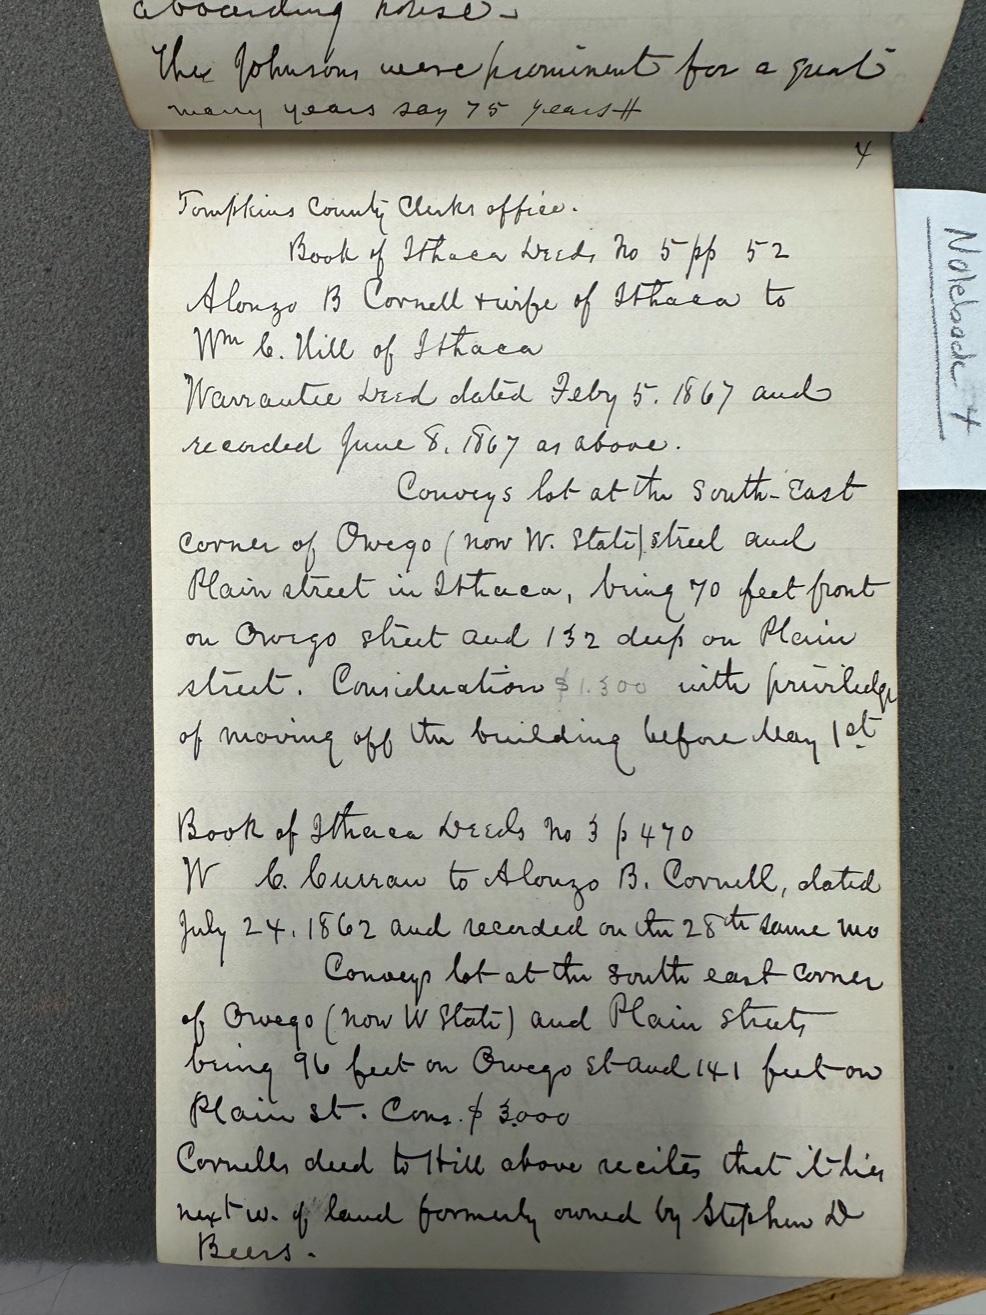 a boarding house.
The Johnsons were prominent for a great
many years say 75 years #
4
Tompkins County Clerks office.
Book of Ithaca Deeds No 5 pp 52
Alonzo B Cornell + wife of Ithaca to
Wm C. Hill of Ithaca
Warrantee Deed dated Feby 5. 1867 and
recorded June 8. 1867 as above.
Conveys lot at the South-East
corner of Owego (now W. State) street and
Plain street in Ithaca, being 70 feet front
on Owego street and 132 deep on Plain
street. Consideration $1.300 with priviledge
of moving off the building before May 1st
Book of Ithaca Deeds No 3 p 470
W C. Curran to Alonzo B. Cornell, dated
July 24. 1862 and recorded on the 28th same mo
Conveys lot at the south east corner
of Owego (now W State) and Plain streets
being 96 feet on Owego st and 141 feet on
Plain st. Cons. $ 3.000
Cornells deed to Hill above recites that it lies
next w. of land formerly owned by Stephen D
Beers.
Notebook 4